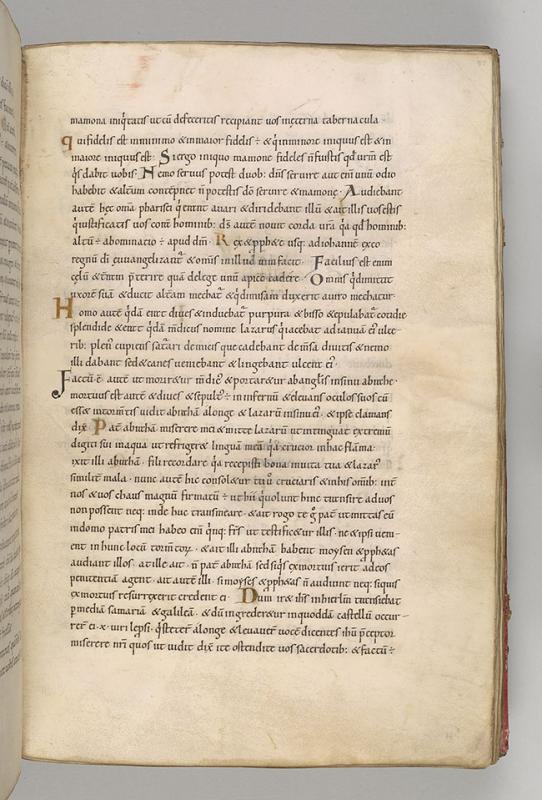 mamona iniq̇tatis ut cū defeceritis recipiant uos in ęterna tabernacula·
Qui fidelis est in minimo & in maiore fidelis ÷ & q̇ in minore iniquus est & in
maiore iniquus est· Si ergo iniquo mamone fideles n̄ fuistis qđ urm̄ est
q̇s dabit uobis· Nemo seruus potest duob; dn̄is seruire aut eni unū odio
habebit & alterū contēpnet n̄ potestis dō seruire & mamonę· Audiebant
autē hęc om̄a pharisei q̇ erant auari & diridebant illū & ait illis uos estis
q̇ iustificatis uos corā hominib; ds̄ autē nouit corda urā q̇a qđ hominib;
altū ÷ abominatio ÷ apud dm̄· Lex & pph&ę usq; ad iohannē ex eo
regnū dī euuangelizat᷑ & omnis in illud uim facit· Facilius est enim
cęlū & t᷑rā p̄terire quā de lege unū apicē cadere· Omnis q̇ dimittit
uxorē suā & ducit alterā mechat᷑ & q̇ dimissam duxerit a uiro mechatur·
Homo autē q̇dā erat diues & induebat᷑ purpura & bisso & epulabat᷑ cotidie
splendide & erat q̇dā mdicus nomine lazarus q̇ iacebat ad ianuā ei᷒ ulce
rib; plen᷒ cupiens saturari de micis que cadebant de m̄sa diuitis & nemo
illi dabant sed & canes ueniebant & lingebant ulcera ei᷒·
Factū ÷ autē ut morir&ur m̄dic᷒ & portar&ur ab anglis in sinū abrahę·
mortuus est autē & diues & sepult᷒ ÷ in infernū & eleuans oculos suos cū
ess& in torm̄tis uidit abrahā a longe & lazarū in sinu ei᷒· & ipse clamans
dix̄· Pat᷑ abrahā miserere mei & mitte lazarū ut intinguat extremū
digiti sui in aqua ut refriger& linguā meā q̇a crucior in hac flāma·
ixit illi abrahā· fili recordare q̇a recepisti bona in uita tua & lazar᷒
similit᷑ mala· nunc autē hic consol&ur tu u᷒ cruciaris & in his om̄ib; int᷑
nos & uos chaus magnū firmatū ÷ ut hii q̇ uolunt hinc transire ad uos
non possent neq; inde huc transmeare· & ait rogo te g̊ pat᷑ ut mittas eū
in domo patris mei habeo eni̅ q̇nq; fr̄s ut testific&ur illis· ne & ipsi ueni
ent in hunc locū torm̄torꝝ· & ait illi abrahā habent moysen & pph&as
audiant illos· at ille ait· n̄ pat᷑ abrahā sed siq̇s ex mortuis ierit ad eos
penitentiā agent· ait autē illi· si moyses & pph&as n̄ audiunt neq; siquis
ex mortuis resurrexerit credent ei· Dum ir& ih̄s in hierlm̄ transiebat
p mediā samariā & galileā· & dū ingreder&ur in quoddā castellū occur
rer̄ ei·x·uiri lepsi· q̇ steter̄ a longe & leuauer̄ uocē dicentes ih̄u p̄ceptor
miserere nr̄i quos ut uidit dix̄ ite ostendite uos sacerdotib; & factū ÷